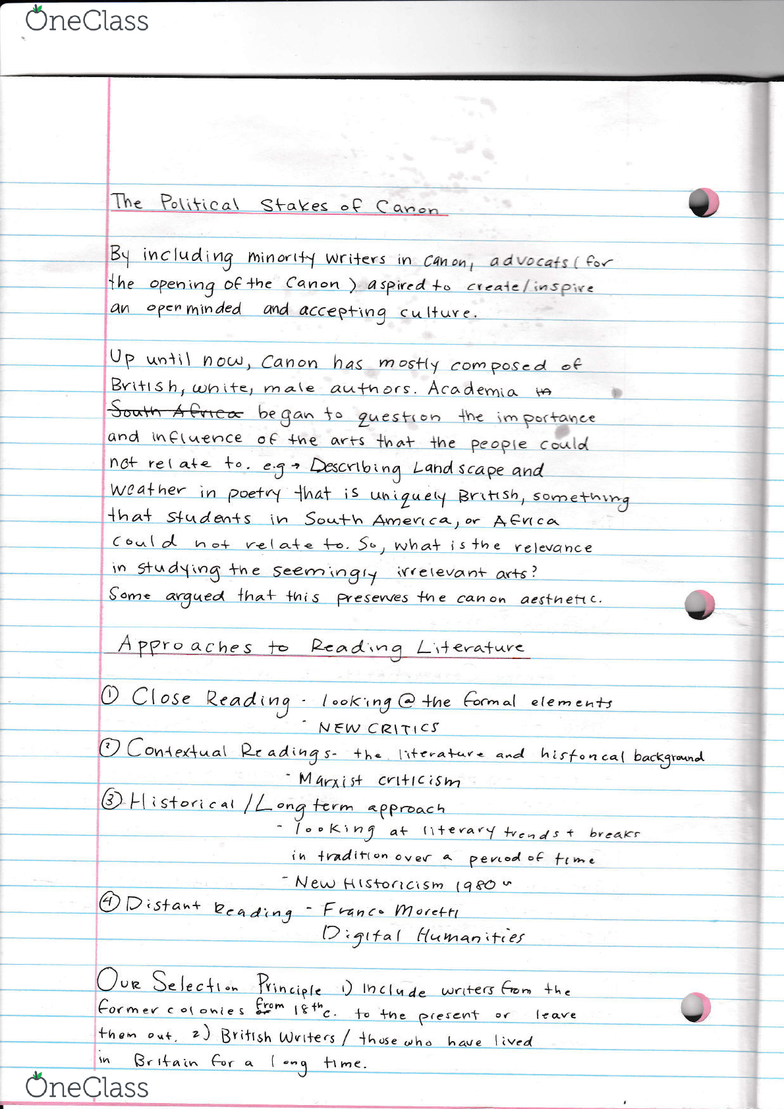 OneClass
The Political Stakes of Canon
By including minority writers in Canon, advocats (for
the opening of the Canon) aspired to create/inspire
an open minded and accepting culture.
Up until now, Canon has mostly composed of
British, white, male authors. Academia in
South Africa began to question the importance
and influence of the arts that the people could
not relate to. e.g → Describing Landscape and
weather in poetry that is uniquely British, something
that students in South America, or Africa
could not relate to. So, what is the relevance
in studying the seemingly irrelevant arts?
Some argued that this preserves the canon aesthetic.
Approaches to Reading Literature
① Close Reading - looking @ the formal elements
- NEW CRITICS
② Contextual Readings - the literature and historical background
- Marxist criticism
③ Historical / Long term approach
- looking at literary trends + breaks
in tradition over a period of time
- New Historicism 1980
④ Distant Reading - Franco Moretti
Digital Humanities
Our Selection Principle 1) Include writers from the
former colonies from 18th c. to the present or leave
them out. 2) British Writers / those who have lived
in Britain for a long time.
OneClass